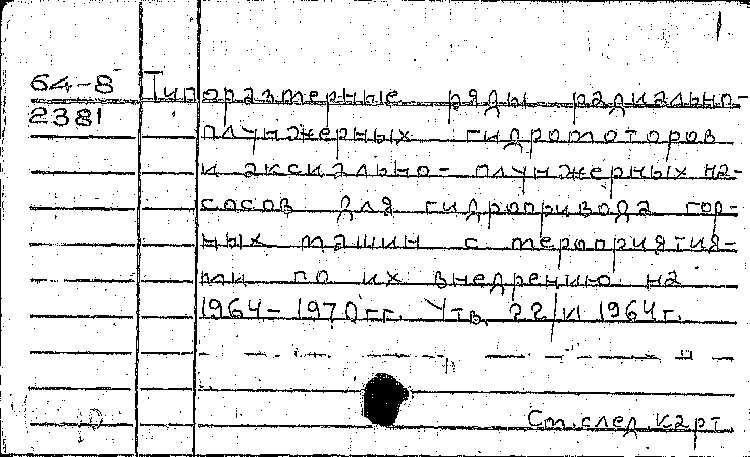 64-8 Типоразмерные ряды радиально-
2381 плунжерных гидромоторов
и аксиально-плунжерных на-
сосов для гидропривода гор-
ных машин с мероприятия-
ми по их внедрению на
1964-1970гг. Утв. 22/VI 1964г.
См. след. карт.